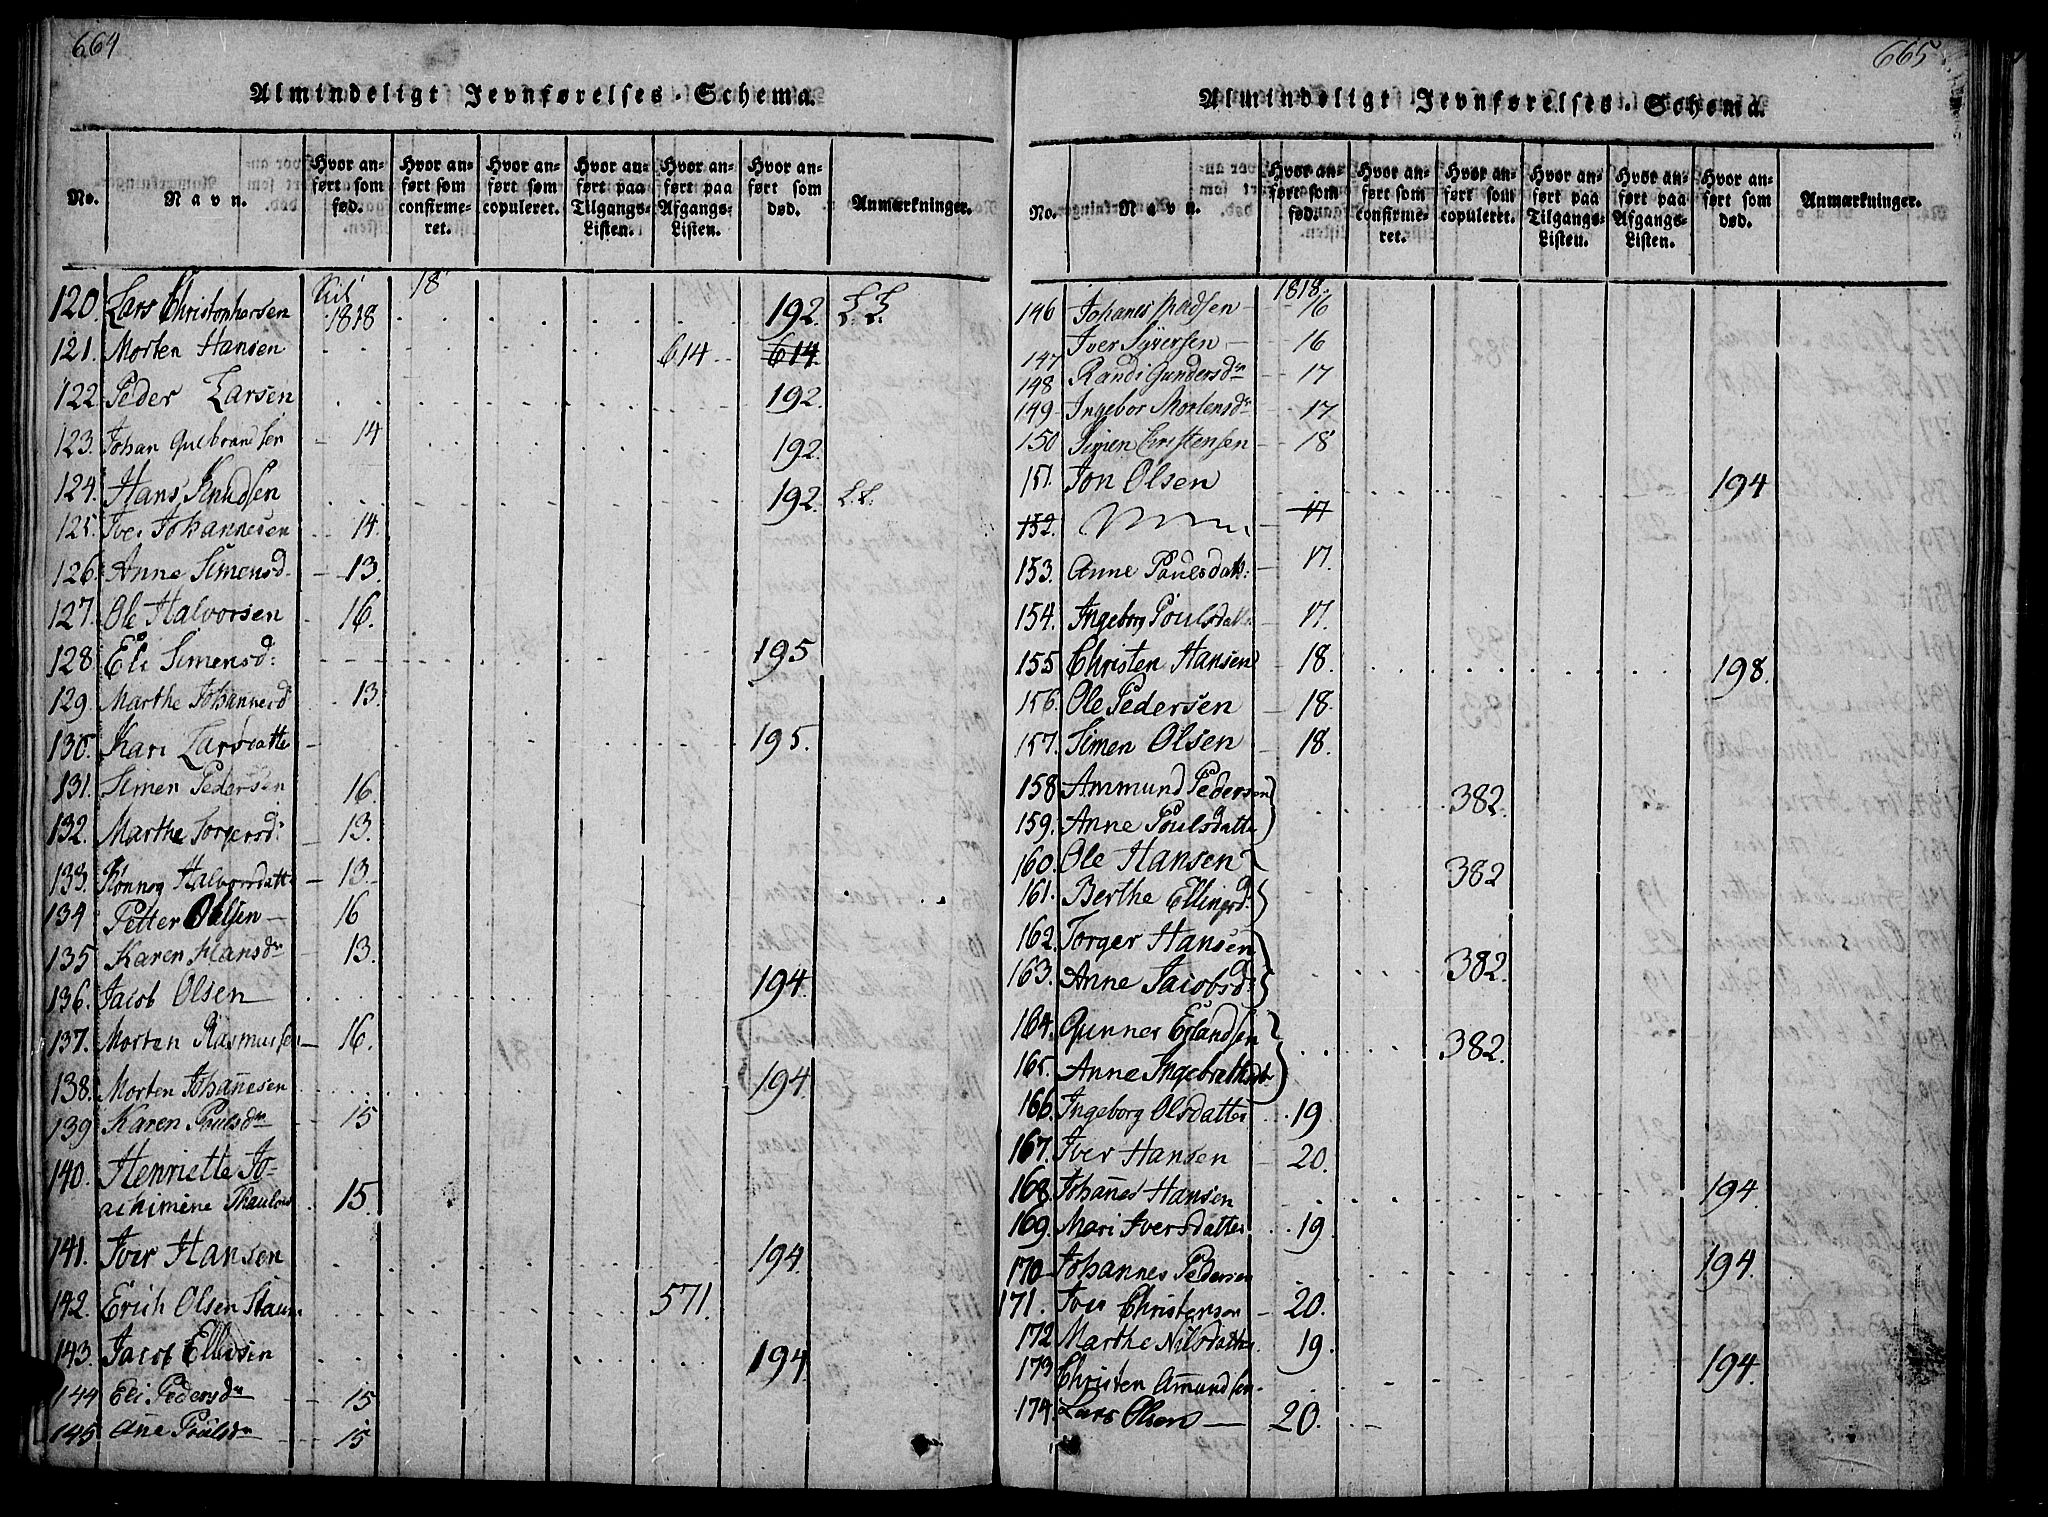 664
Almindeligt Jevnførelses-Schema.
No. Navn. Hvor anført som fød. Hvor anført som confirmeret. Hvor anført som copuleret. Hvor anført paa Tilgangs-Listen. Hvor anført paa Afgangs-Listen. Hvor anført som død. Anmærkninger.
18
120. Lars Christophersen 1818 192. L.L.
121. Morten Hansen 614 614
122 Peder Larsen 192.
123. Johan Gulbrandsen 14 192.
124. Hans Knudsen 192. L.L.
125. Iver Johannesen 14.
126. Anne Simensd. 13.
127. Ole Halvorsen 16.
128. Eli Simensd: 195
129. Marthe Johannesd 13.
130. Kari Larsdatte 195.
131. Simen Pedersen 16.
132. Marthe Torgersd: 13.
133. Rønnog Halvorsdatte 13.
134 Petter Olsen 16
135 Karen Hansdr 13.
136. Jacob Olsen 194.
137. Morten Rasmussen 16.
138. Morten Johañesen 194.
139 Karen Paulsdr 15
140. Henriette Jo-
achimine Thaulow 15.
141. Iver Hansen 194.
142. Erich Olsen 571.
143. Jacob 194.
144 Eli Pedersdr 15
145 Ane Poulsdr 15
665
Almindeligt Jevnførelses-Schema.
No. Navn. Hvor anført som fød. Hvor anført som confirmeret. Hvor anført som copuleret. Hvor anført paa Tilgangs-Listen. Hvor anført paa Afgangs-Listen. Hvor anført som død. Anmærkninger.
1818.
146 Johanes 16
147 Iver Syversen 16
148 Randi Gundersdr 17
149 Ingebor Mortensdr 17
150 Simen Christensen 18
151. Jon Olsen 194
152. 17
153. Anne Poulsdatt: 17.
154. Ingeborg Poulsdatt. 17.
155 Christen Hansen 18. 198.
156. Ole Pedersen 18.
157. Simen Olsen 18.
158 Ammund Pedersen 382.
159. Anne Poulsdatte
160. Ole Hansen 382
161. Berthe Ellingsd:
162. Torger Hansen 382.
163. Anne Jacobsd:
164. Gunner Erlandsen 382.
165. Anne
166. Ingeborg Olsdatter 19.
167. Iver Hansen 20.
168. Johañes Hansen 194.
169. Mari Iversdatter 19.
170 Johannes Pedersen 194.
171. Iver Christensen 20.
172 Marthe Nilsdatter 19.
173 Christen Amundsen 194.
174. Lars Olsen 20.